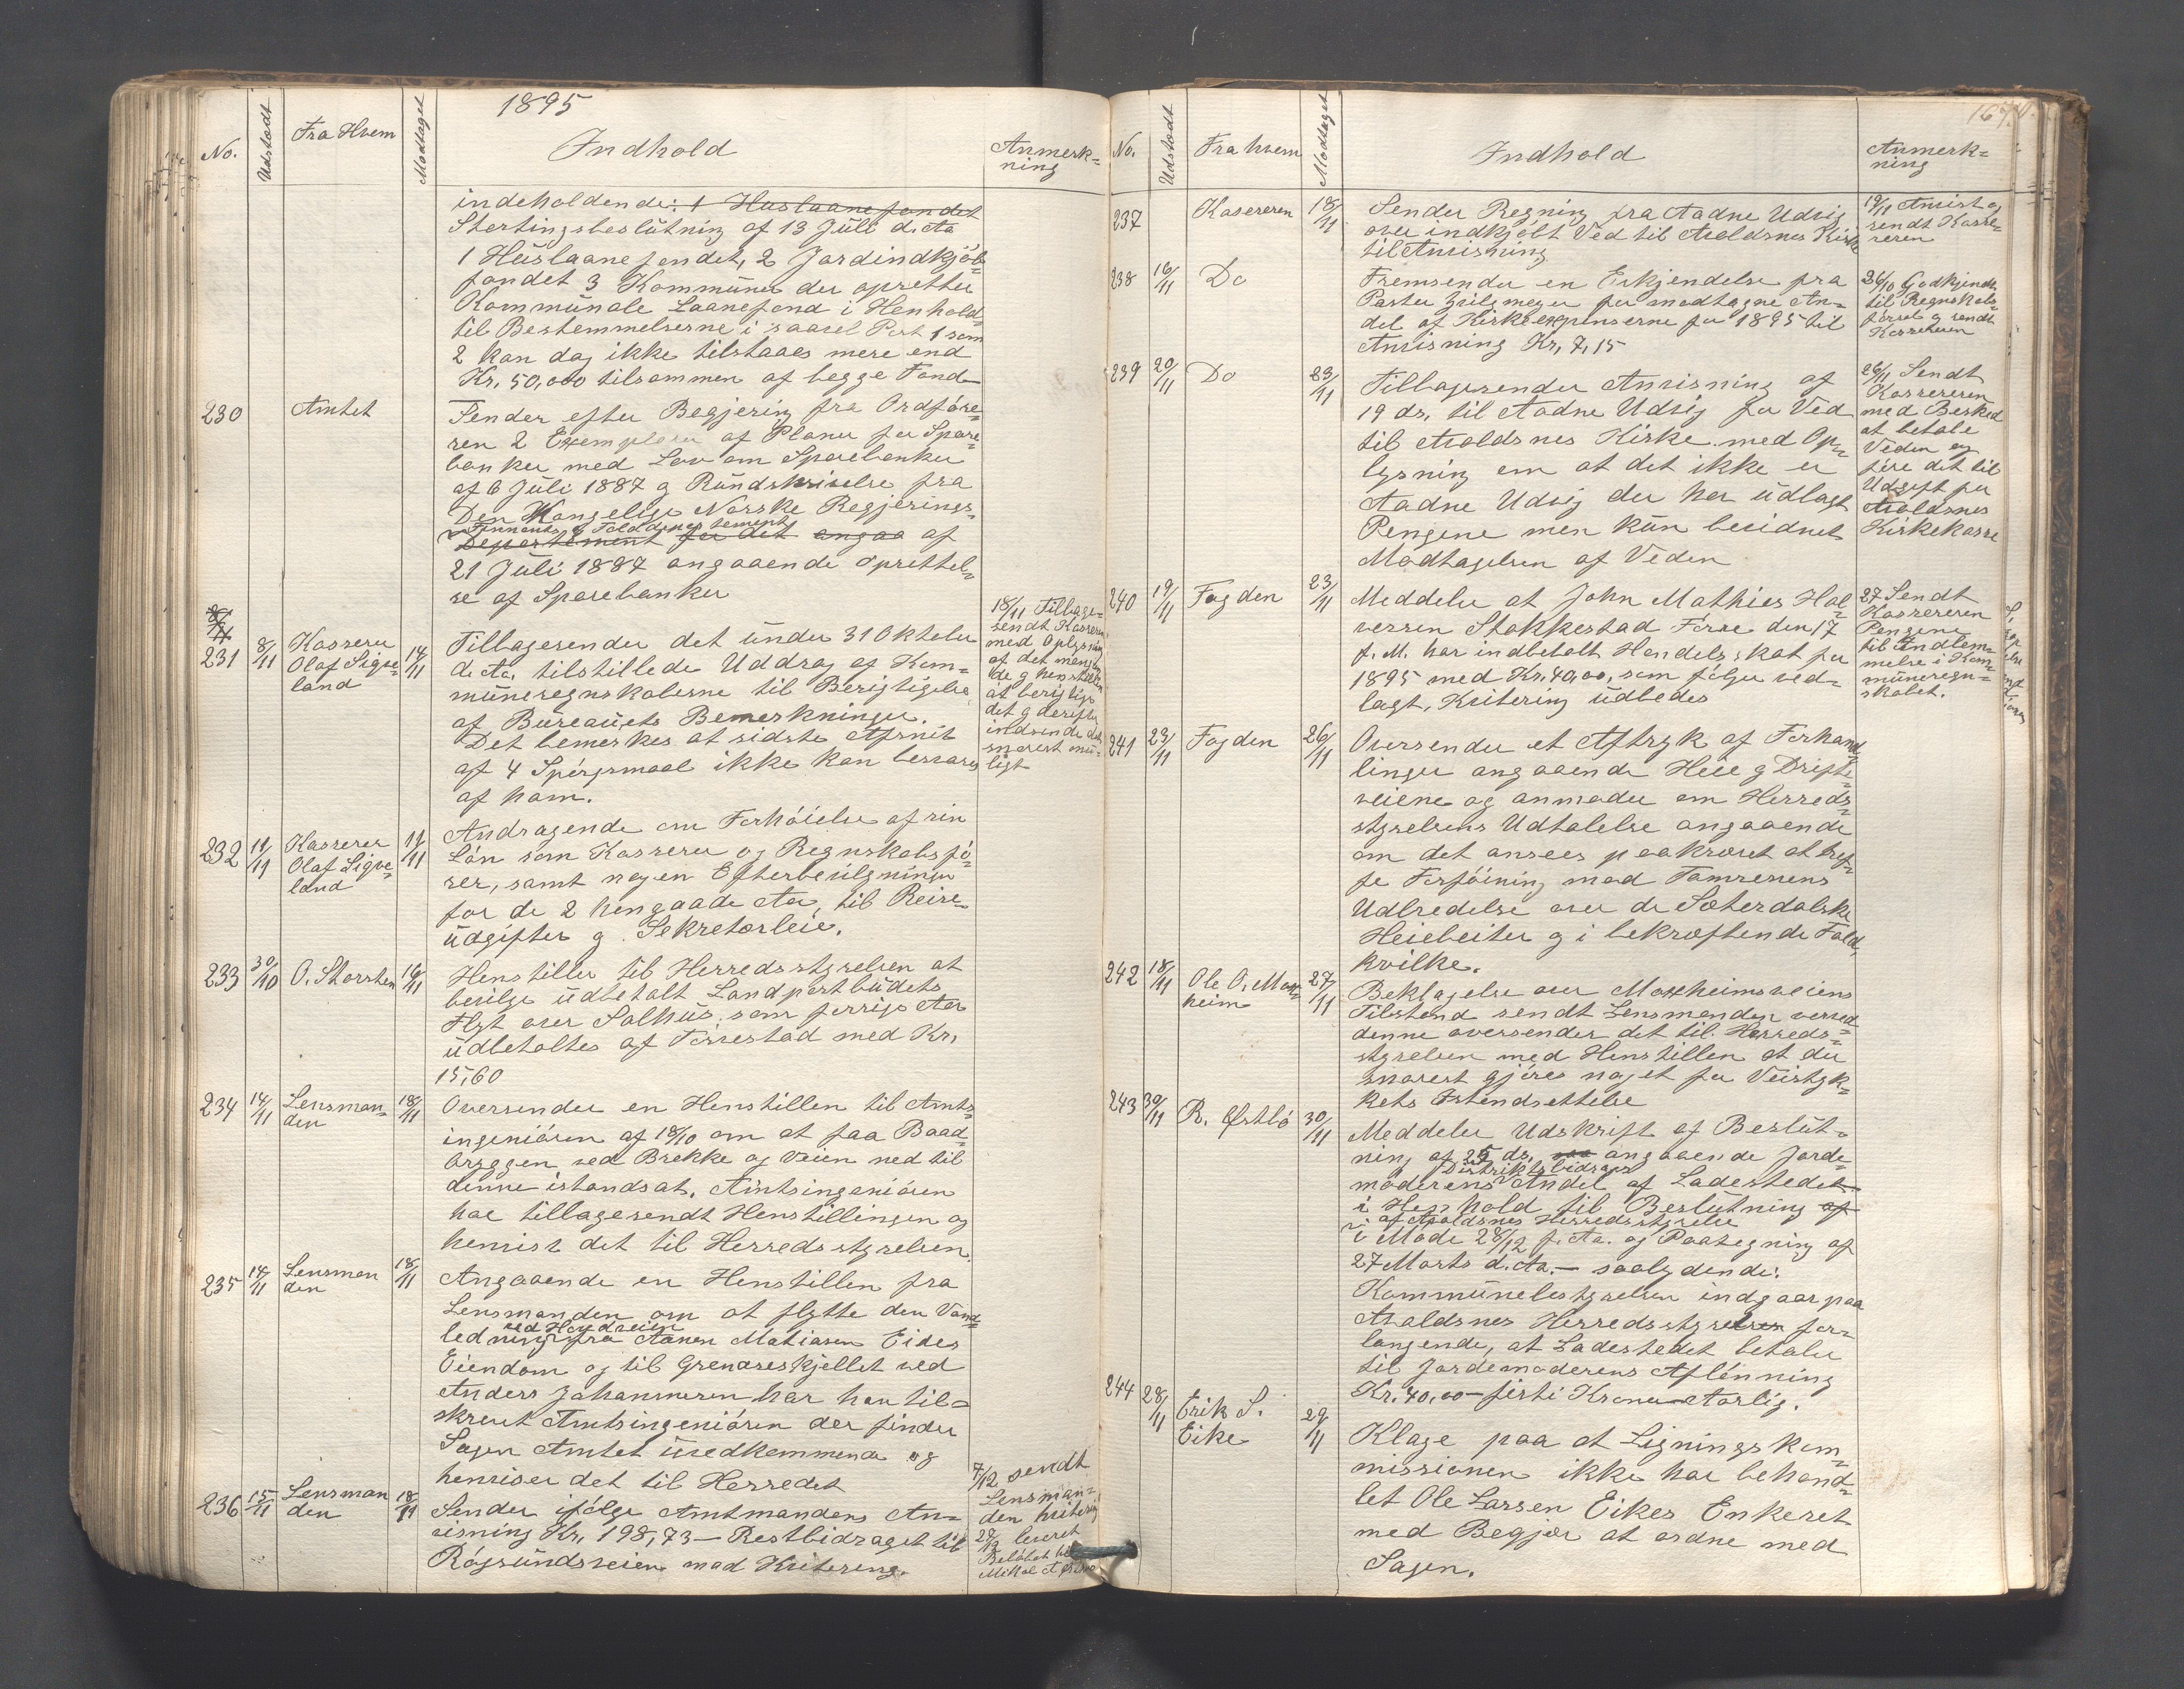 1895
No. Udstædt Fra Hvem Modtaget Indhold Anmerk=
ning
indeholdende: 1 Huslaanefondet
Stortingsbeslutning af 13 Juli d. Aa
1 Huslaanefondet, 2 Jordindkjöbs=
fondet 3 Kommuner der opretter
Kommunale Laanefond i Henhold
til Bestemmelserne i saavel Post 1 som
2 kan dog ikke tilstaaes mere end
Kr. 50,000 tilsammen af begge Fond
230 Amtet
Sender efter Begjering fra Ordföre=
ren 2 Exemplarer af Planer for Spare=
banker med Lov om Sparebanker
af 6 Juli 1887 og Rundskrivelse fra
Den Kongelige Norske Regjerings=
Finnants og Tolddepartement
Departement for det angaa af
21 Juli 1887 angaaende Oprettel=
se af Sparebanker
231 8/11 Kasserer
Olaf Sigve=
land
14/11
Tilbagesender det under 31 Oktober
d. Aa. tilstillede Uddrag af Kom=
muneregnskaberne til Berigtigelse
af Bureauets Bemerkninger.
Det bemerkes at sidste Afsnit
af 4 Spörgsmaal ikke kan besvares
af ham.
18/11 Tilbage=
sendt Kasserer
med Oplysning
af det mangle
de og henstillen
at berigtige
det og derefter
indsende det
snarest mu=
ligt
232 19/11 Kasserer
Olaf Sigve=
land
19/11
Andragende om Forhöielse af sin
Lön som Kasserer og Regnskabsfö=
rer, samt nogen Efterbevilgninger
for de 2 hengaade Aar, til Reise=
udgifter og Sekretærleie.
233 30/10 O. Storsten 16/11
Henstiller til Herredsstyrelsen at
bevilge udbetalt Landpostbudets
Flyt over Salhus, som forrige Aar
udbetaltes af Förrestad med Kr.
15,60
234 14/11 Lensman=
den
18/11
Oversender en Henstillen til Amts=
ingeniören af 18/10 om at faa Baad=
bryggen ved Brekke og Veien ned til
denne istandsat. Amtsingeniören
har tilbagesendt Henstillingen og
henvist det til Herredsstyrelsen.
235 14/11 Lensman
den
18/11
Angaaende en Henstillen fra
Lensmanden om at flytte den Vand=
ved Hovedveien
ledning fra Aanen Matiasen Eides
Eiendom og til Grenæseskjellet ved
Anders Johannesen har han til=
skrevet Amtsingeniören der finder
Sagen Amtet uvedkommende og
henviser det til Herredet
236 15/11 Lensman
den
18/11
Sender ifölge Amtmandens An=
visning Kr. 198,73 — Restbidraget til
Rögsundsveien mod Kvitering.
7/12 sendt
Lensman=
den kvitering
22/12 leveret
Belöbet
Mikal A
No. Udstædt Fra hvem Modtaget Indhold Anmerk=
ning
237 Kasereren 18/11
Sender Regning fra Aadne Udvig
over indkjöbt Ved til Avaldsnes Kirke
til Anvisning
19/11 Anvist og
sendt Kasse=
reren
238 16/11 Do
Fremsender en Erkjendelse fra
Pastor for modtagne An=
del af Kirkeexpenserne for 1895 til
Anvisning Kr. 7,15
26/10 Godkjendt
til Regnskabs=
försel og sendt
Kassereren
239 20/11 Do 23/11
Tilbagesender Anvisning af
19 ds. til Aadne Udvig for Ved
til Avaldsnes Kirke med Op=
lysning om at det ikke er
Aadne Udvig der har udlagt
Pengene men kun bevidnet
Modtagelsen af Veden
26/11 Sendt
Kassereren
med Besked
at betale
Veden og
före det til
Udgift for
Avaldsnes
Kirkekasse
240 19/11 Fogden 23/11
Meddeler at John Mathies Hal=
versen Stokkestad Förre den 17
f. M. har indbetalt Handelsskat for
1895 med Kr. 40,00, som fölger ved=
lagt, Kvitering udbedes
27 Sendt
Kassereren
Pengene
til Indlem=
melse i Kom=
muneregn=
skabet.
241 23/11 Fogden 26/11
Oversender et Aftryk af Forhand=
linger angaaende Heie og Drifts=
veiene og anmoder om Herreds=
styrelsens Udtalelse angaaende
om det ansees paakrævet at tref=
fe Forföining mod Tamrenens
Udbredelse over de Sæterdalske
Heiebeiter og i bekræftende Fald,
hvilke.
242 18/11 Ole O. Mox=
heim
27/11
Beklagelse over Moxheimsveiens
Tilstand sendt Lensmanden
denne oversender det til Herreds=
styrelsen med Henstillen at der
snarest gjöres noget for Veistyk=
kets Istandsettelse
243 30/11 R. Østbö 30/11
Meddeler Udskrift af Beslut=
ning af 25 ds. angaaende Jorde=
Distriktsbidraget
moderens Andel af Ladestedet
i Henhold til Beslutning af
af Avaldsnes Herredsstyrelse
i Möde 28/12 f. Aa. og Paategning af
27 Marts d. Aa. — saalydende:
Kommunebestyrelsen indgaar paa
Avaldsnes Herredsstyrelses for=
langende, at Ladestedet betaler
til Jordemoderens Aflönning
Kr. 40,00 — firti Kroner — Aarlig.
244 28/11 Erik S.
Eike
29/11
Klage paa at Lignings kom=
missionen ikke har behand=
let Ole Larsen Eikes Enkeret
med Begjær at ordne med
Sagen.